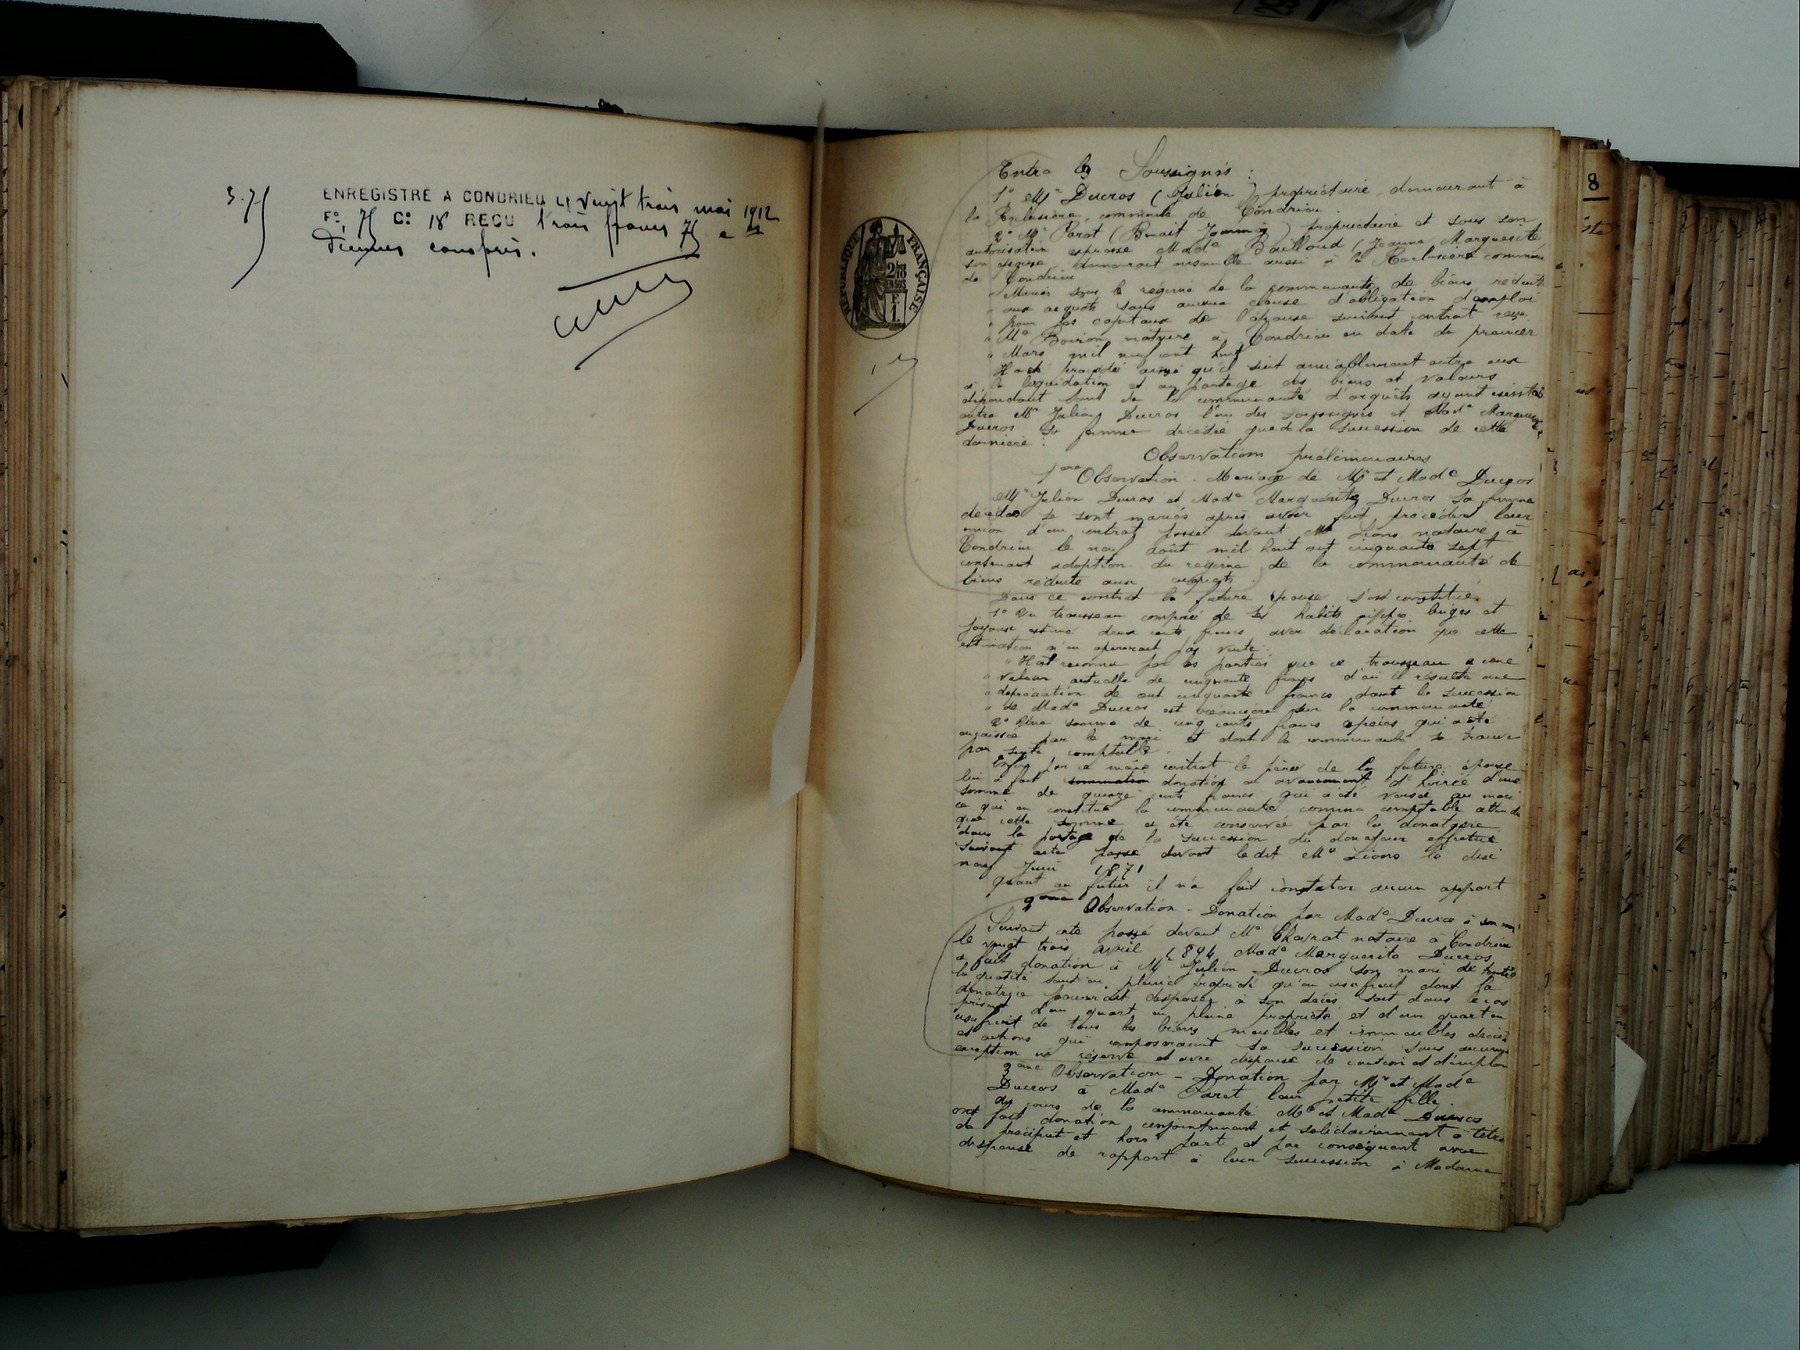 3.75
ENREGISTRÉ A CONDRIEU LE vingt trois mai 1912
F° 75 C° 18 REÇU trois francs 75 c
Décimes compris.
RÉPUBLIQUE FRANÇAISE
2/10
EN SUS
F.
1.
8
Entre les Soussignés :
1° Mr Ducros (Julien) propriétaire, demeurant à
la Rochusière, commune de Condrieu.
2° Mr Paret (Benoit) propriétaire et sous son
autorisation expresse Made Bailloud (Jeanne Marguerite
son épouse demeurant ensemble aussi à la commune
de Condrieu
" Mariés sous le régime de la communauté de biens réduite
" aux acquets sans aucune clause d'obligation d'emploi
" pour les capitaux de l'épouse suivant contrat reçu
" Me Boiron notaire à Condrieu en date du premier
" Mars mil neuf cent huit
Il a été procédé ainsi qu'il suit amiablement entre eux
à la liquidation et au partage des biens et valeurs
dépendant tant de la communauté d'acquêts ayant existé
entre Mr Julien Ducros l'un des soussignés et Made Marguerite
Ducros sa femme décédée que de la succession de cette
dernière :
Observations préliminaires
1ère Observation - Mariage de Mr et Made Ducros
Mr Julien Ducros et Made Marguerite Ducros sa femme
décédée se sont mariés après avoir fait précéder leur
union d'un contrat passé devant Me Lions notaire à
Condrieu le neuf août mil huit cent cinquante sept
contenant adoption du régime de la communauté de
biens réduite aux acquets.
Dans ce contrat la future épouse s'est constitué.
1° Un trousseau composé de ses habits linges et
joyaux estimé deux cents francs avec déclaration que cette
estimation n'en opérerait pas vente.
" Il est reconnu par les parties que ce trousseau a une
" valeur actuelle de cinquante francs d'où il résulte une
" dépréciation de cent cinquante francs dont la succession
" de Made Ducros est créancière sur la communauté
2° Une somme de cinq cents francs espèces qui a été
encaissée par le mari et dont la communauté se trouve
par suite comptable.
Enfin par le même contrat le père de la future épouse
lui a fait donation en avancement d'hoirie d'une
somme de quinze cents francs qui a été versée au mari
ce qui en constitue la communauté comme comptable attendu
que cette somme a été conservée par la donataire
dans le partage de la succession du donateur effectué
suivant acte passé devant ledit Me Lions le dix
neuf Juin 1871
Quant au futur il n'a fait constater aucun apport
2ème Observation - Donation par Made Ducros à son mari
Suivant acte passé devant Me Chavrat notaire à Condrieu
le vingt trois avril 1894 Made Marguerite Ducros
a fait donation à Mr Julien Ducros son mari de toute
la quotité tant en pleine propriété qu'en usufruit dont la
donatrice pouvait disposer à son décès soit dans le cas
présent d'un quart en pleine propriété et d'un quart en
usufruit de tous les biens meubles et immeubles droits
et actions qui composeraient sa succession sans aucune
exception ni réserve et avec dispense de caution et d'emploi
3ème Observation - Donation par Mr et Made
Ducros à Made Paret leur petite fille
Au cours de la communauté Mr et Made Ducros
ont fait donation conjointement et solidairement à titre
de préciput et hors part et par conséquent avec
dispense de rapport à leur succession à Madame